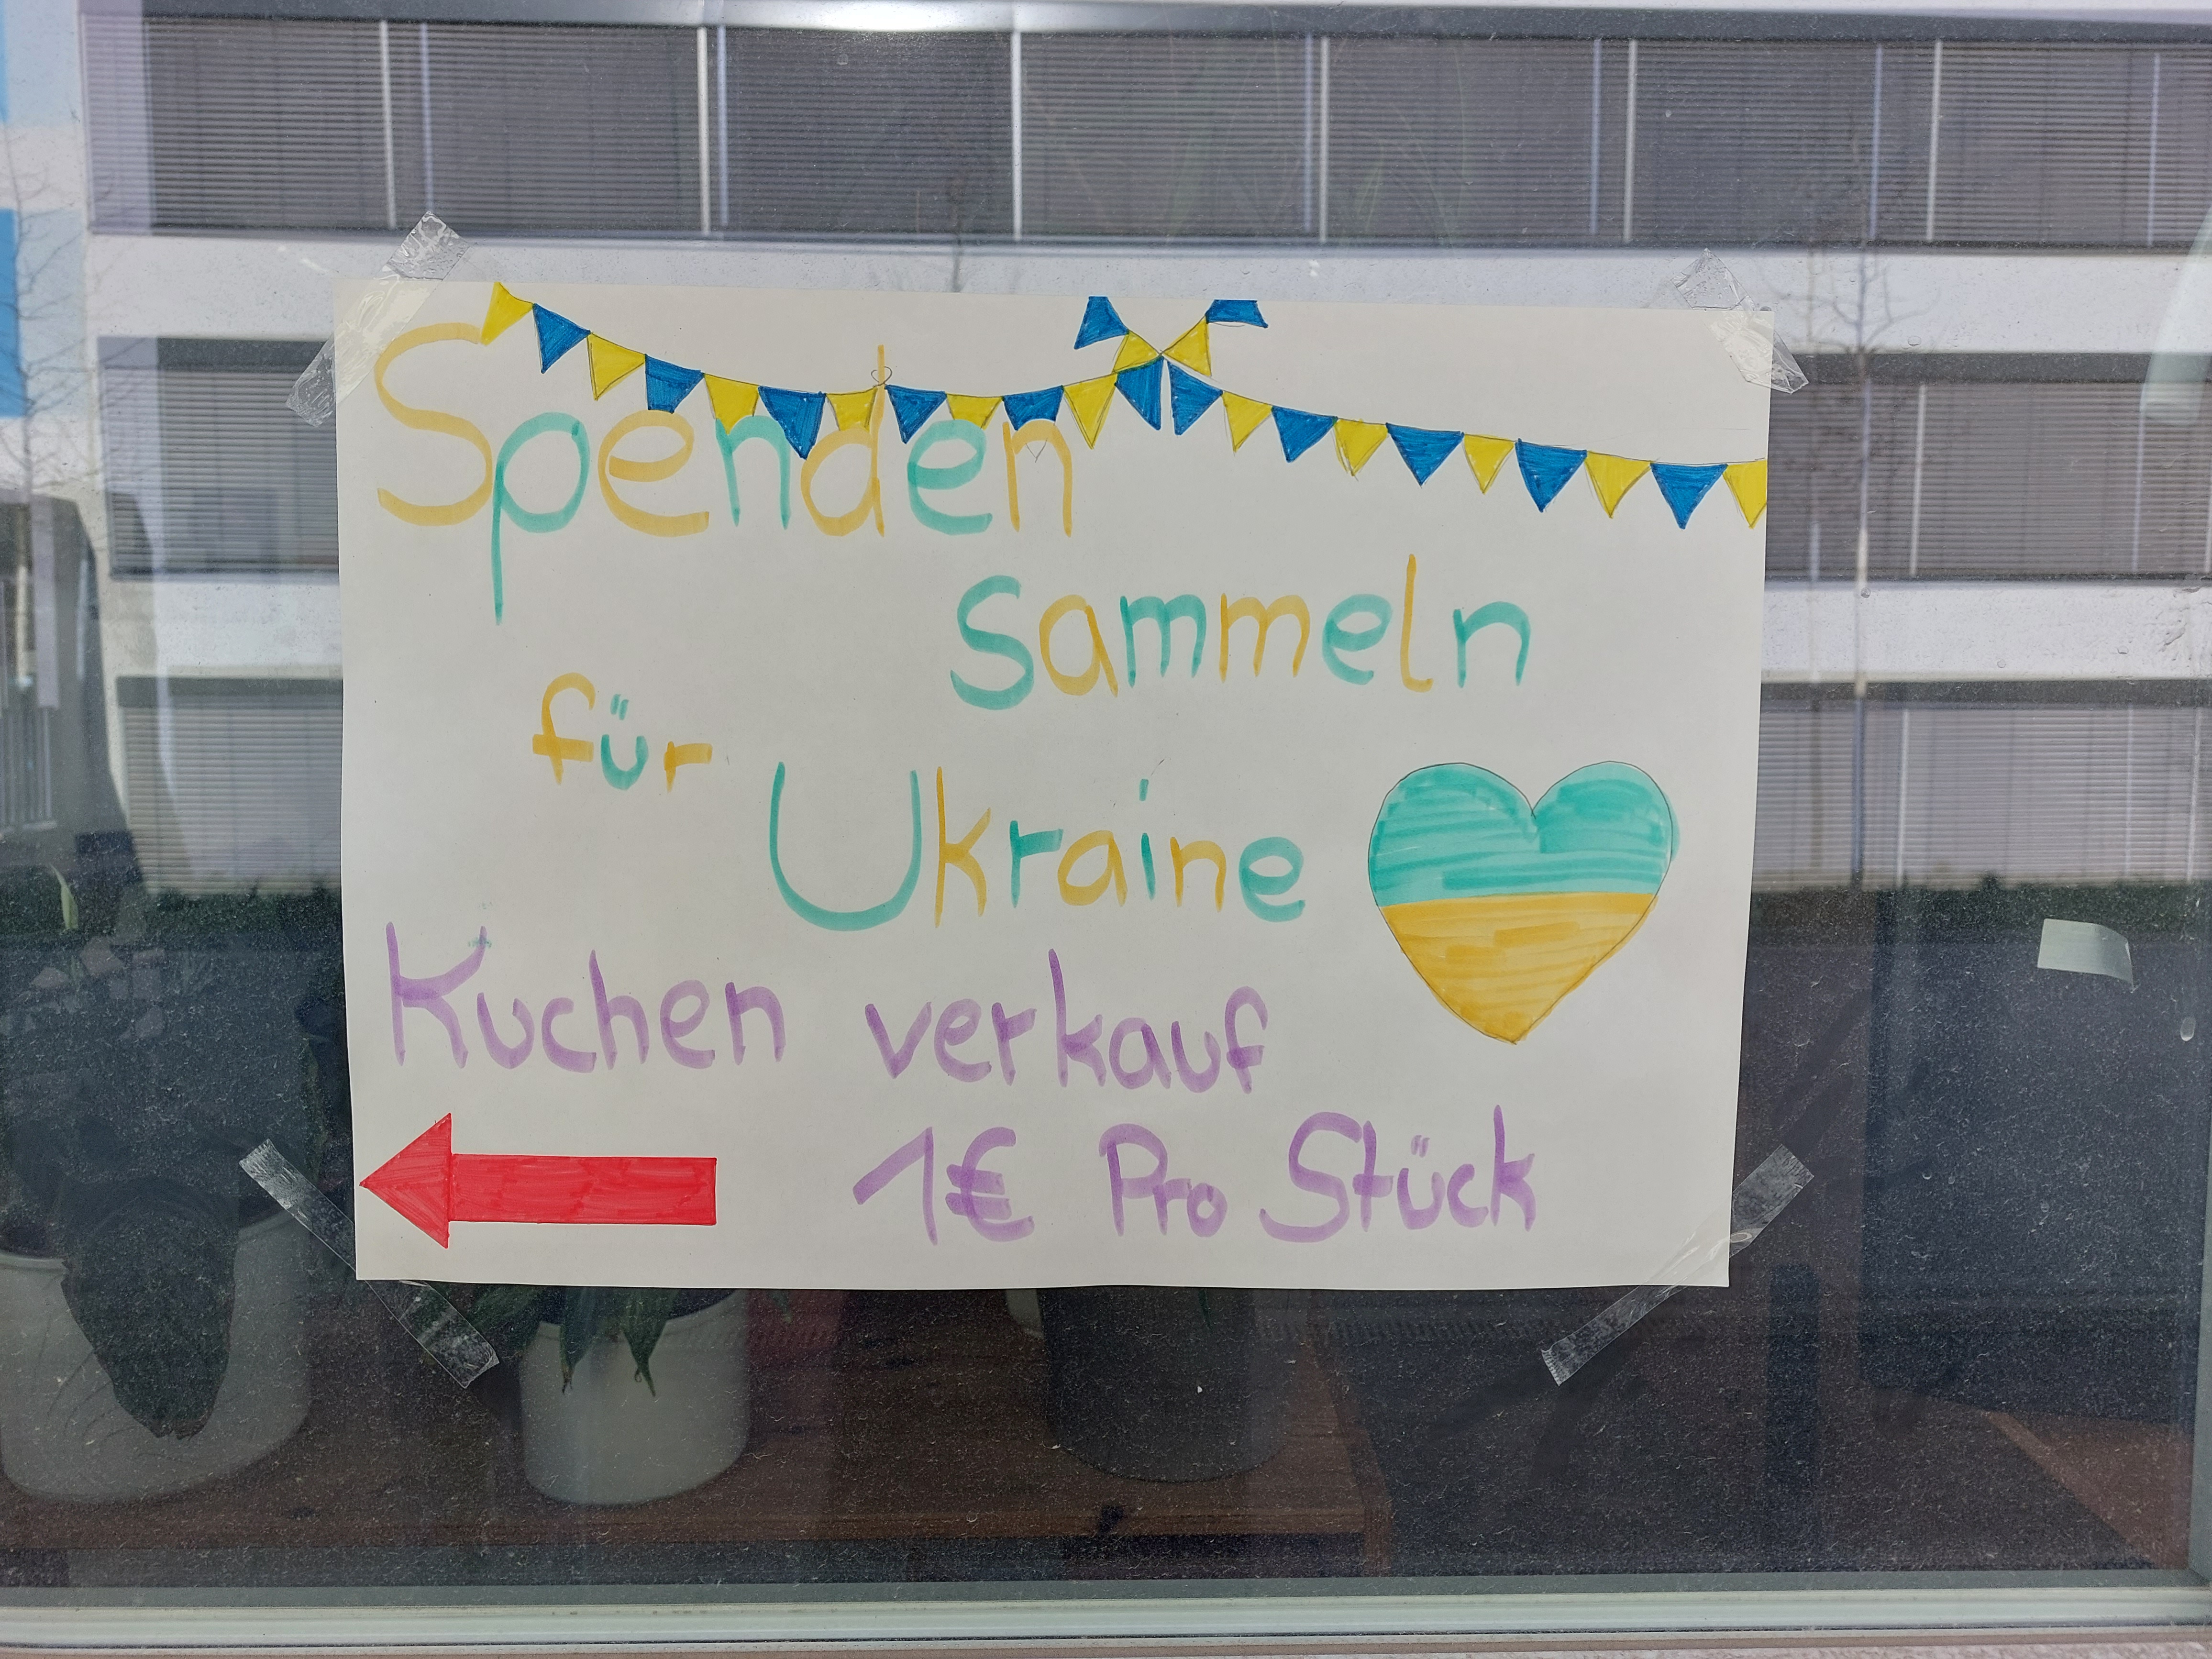 Spenden
sammeln
für
Ukraine
Kuchen verkauf
1€ Pro Stück